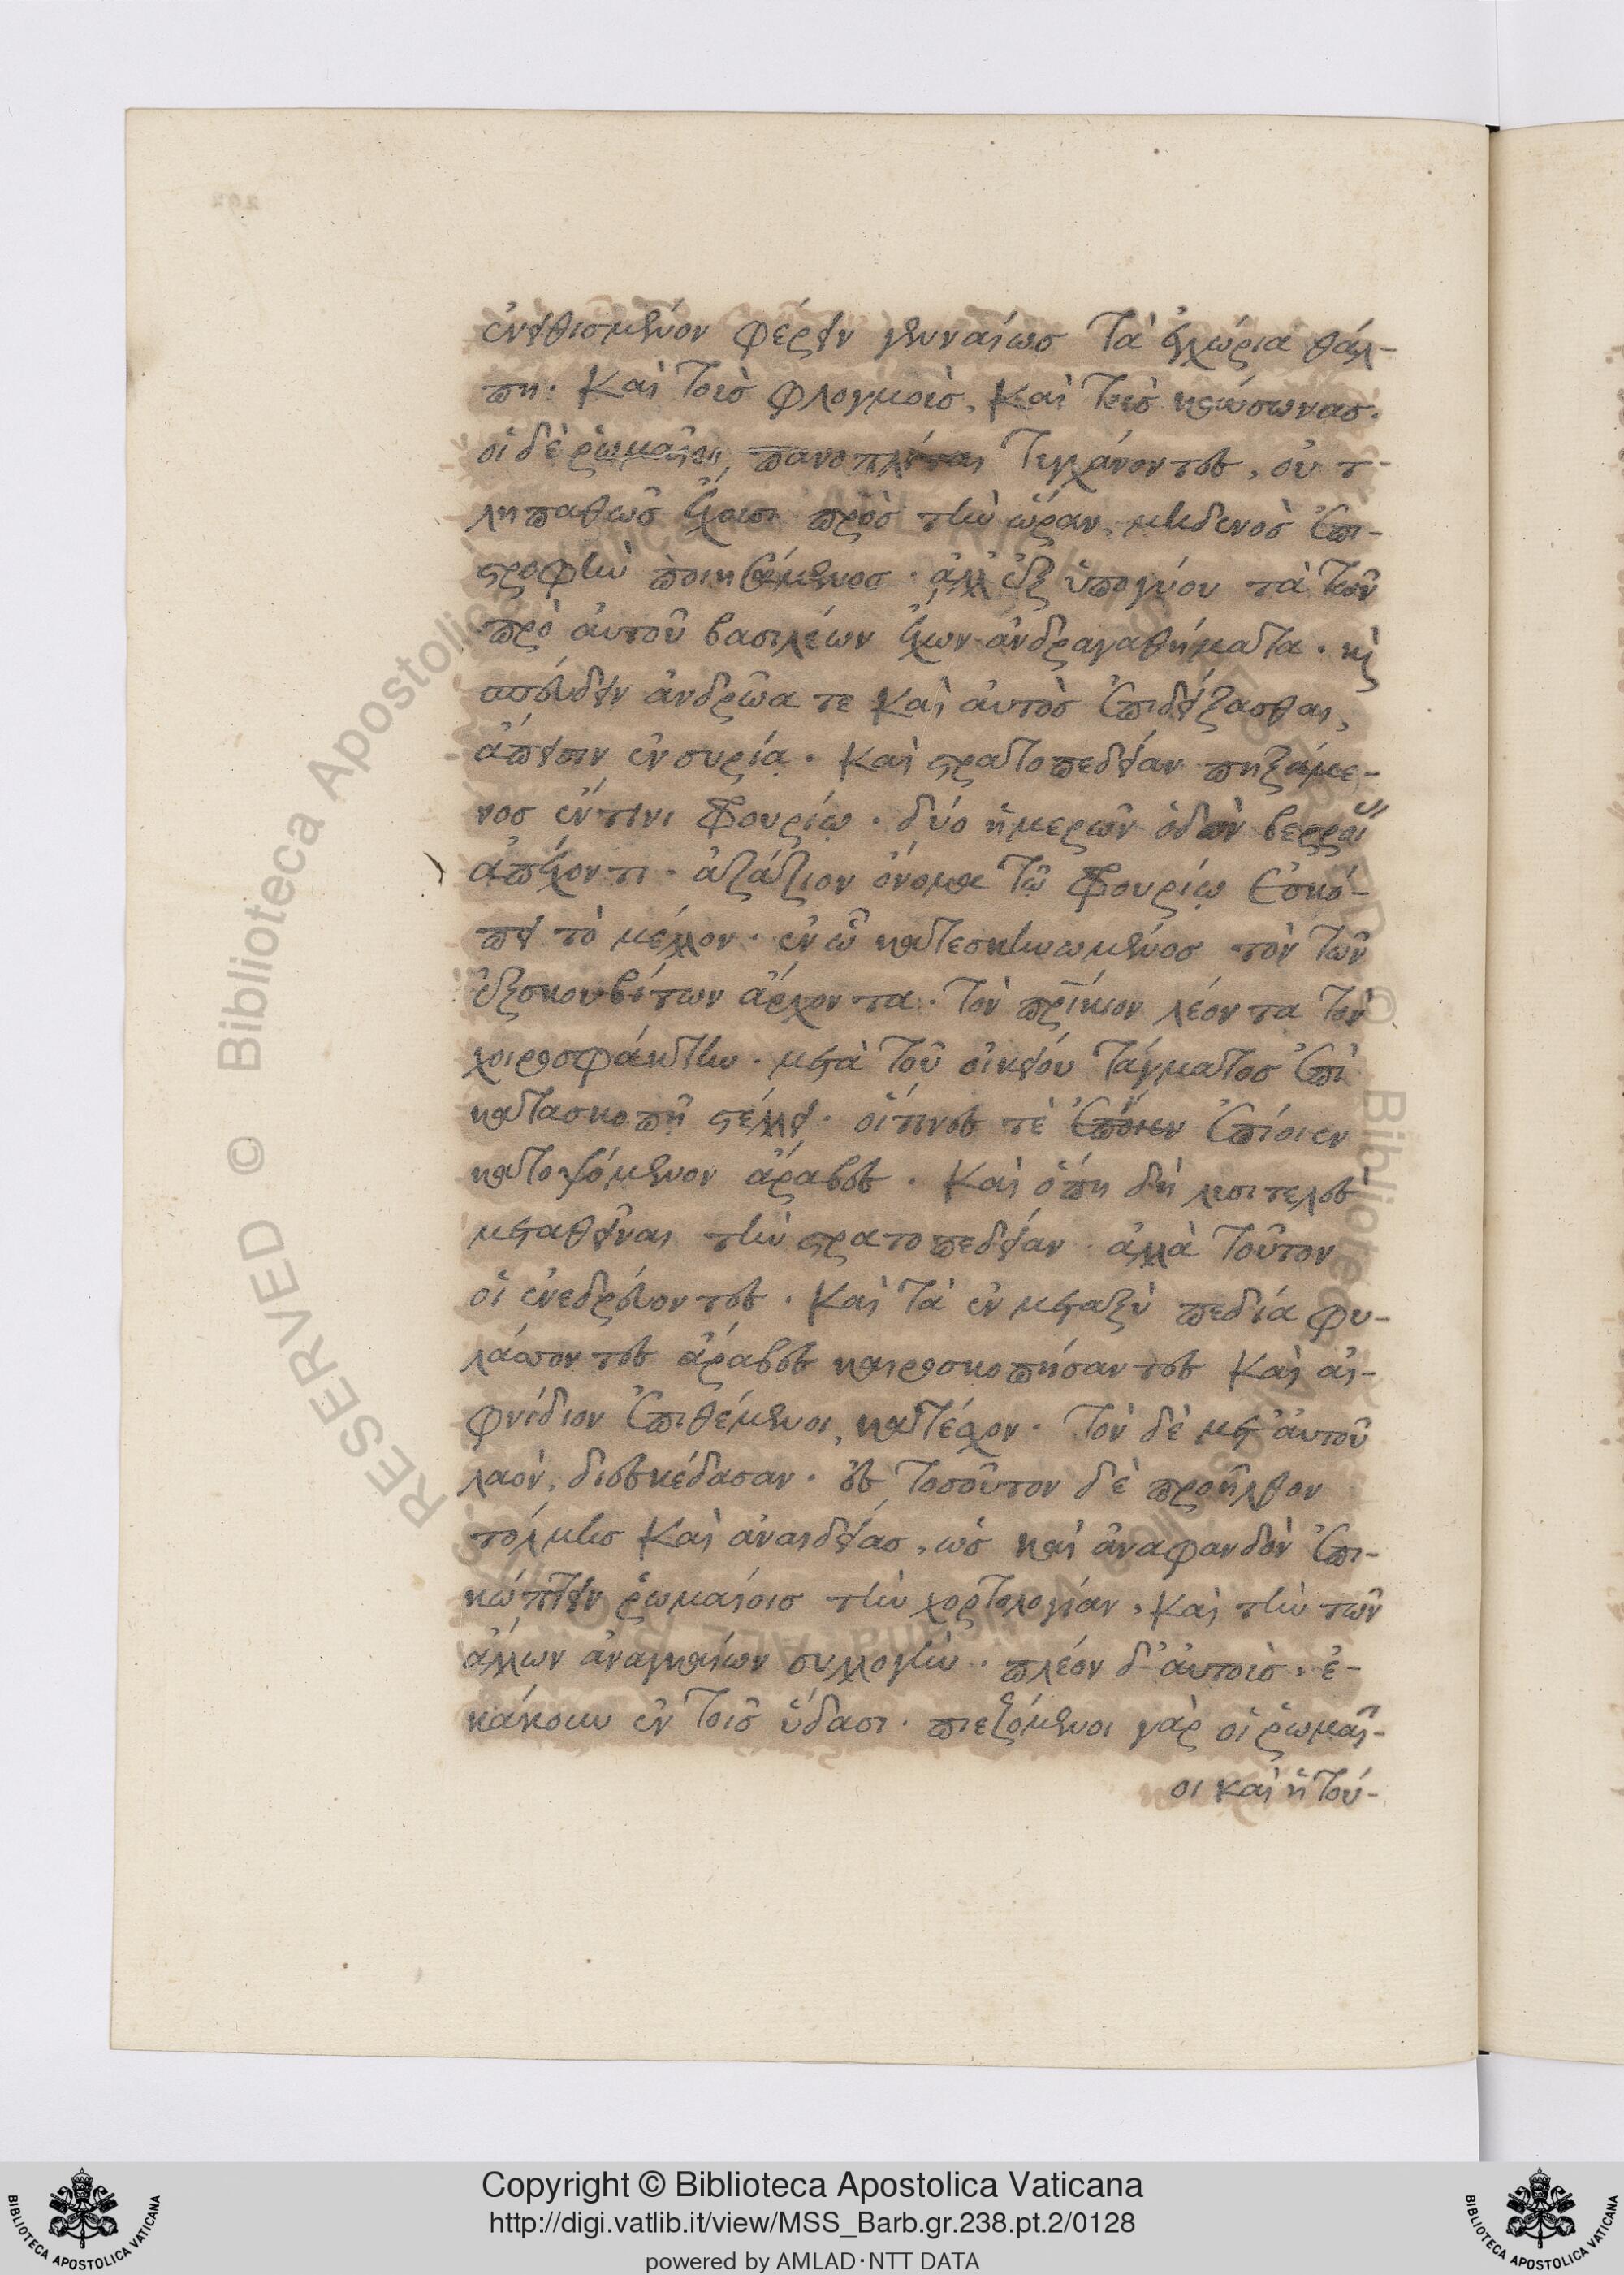 ἐνειθισμένον φέρειν γενναίως τὰ ἐγχώρια θάλ-
πη. καὶ τοῖς φλογμοῖς, καὶ τοῖς καύσωνας.
οἱ δὲ ῥωμαῖοι, πανοπλῖται τυγχάνοντες, οὐ τ-
ληπαθῶς ἔχουσι πρὸς τὴν ὥραν, μηδενὸς ἐπι-
στροφὴν ποιησάμενος. ἀλλ' ἐξ ὑπογύου τὰ τῶν
πρὸ αὐτοῦ βασιλέων ἔχων ἀνδραγαθήματα. κỳ
σπεύδειν ἀνδρῶα τε καὶ αὐτὸς ἐπιδείξασθαι,
ἄπεισιν ἐν συρίᾳ. καὶ στρατοπεδείαν πηξάμε-
νος ἔν τινι φρουρίω. δύο ἡμερῶν ὁδὸν βερροί
ἀπέχοντι. ἀζάζιον ὄνομα τῷ φρουρίῳ ἐσκό-
πει τὸ μέλλον. ἐν ᾧ κατεσκηνωμένος τὸν τῶν
ἐξσκουβίτων ἄρχοντα. τὸν πρίκιον λέοντα τὸν
χοιροσφάκτην. μετὰ τοῦ οἰκείου τάγματος ἐπὶ
κατασκοπῇ στέλλει. οἵτινες τὲ ἐπόιεν ἐπίοιεν
κατοψόμενον ἄραβες. καὶ ὅπη δὴ λυσιτελὲς
μεταθεῖναι τὴν στρατοπεδείαν. ἀλλὰ τοῦτον
οἱ ἐνεδρεύοντες. καὶ τὰ ἐν μεταξὺ πεδία φυ-
λάττοντες ἄραβες καιροσκοπήσαντες καὶ αἰ-
φνίδιον ἐπιθέμενοι, κατέσχον. τὸν δὲ μετ' αὐτοῦ
λαὸν, διεσκέδασαν. ἐς τοσοῦτον δὲ προῆλθον
τόλμης καὶ ἀναιδείας, ὡς καὶ ἀναφανδὸν ἐπι-
κόπτειν ῥωμαίοις τὴν χορτολογίαν, καὶ τὴν τῶν
ἄλλων ἀναγκαίων συλλογὴν. πλέον δ' αὐτοὶς, ἐ-
κάκουν ἐν τοῖς ὕδασι. πιεζόμενοι γὰρ οἱ ῥωμαῖ-
οι καὶ ἢ τού-
RESERVED © Biblioteca Apostolica Vaticana. ALL RIGHTS RESERVED © Biblioteca Apostolica Vaticana. ALL RIGHTS
Copyright © Biblioteca Apostolica Vaticana
http://digi.vatlib.it/view/MSS_Barb.gr.238.pt.2/0128
powered by AMLAD·NTT DATA
BIBLIOTECA APOSTOLICA VATICANA
BIBLIOTECA APOSTOLICA VATICANA